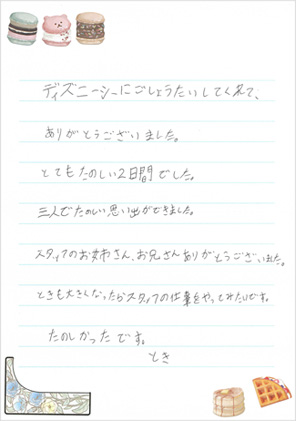 ディズニーシーにごしょうたいしてくれて、
ありがとうございました。
とてもたのしい2日間でした。
三人でたのしい思い出ができました。
スタッフのお姉さん、お兄さんありがとうございました。
ときも大きくなったらスタッフの仕事をやってみたいです。
たのしかったです。
とき